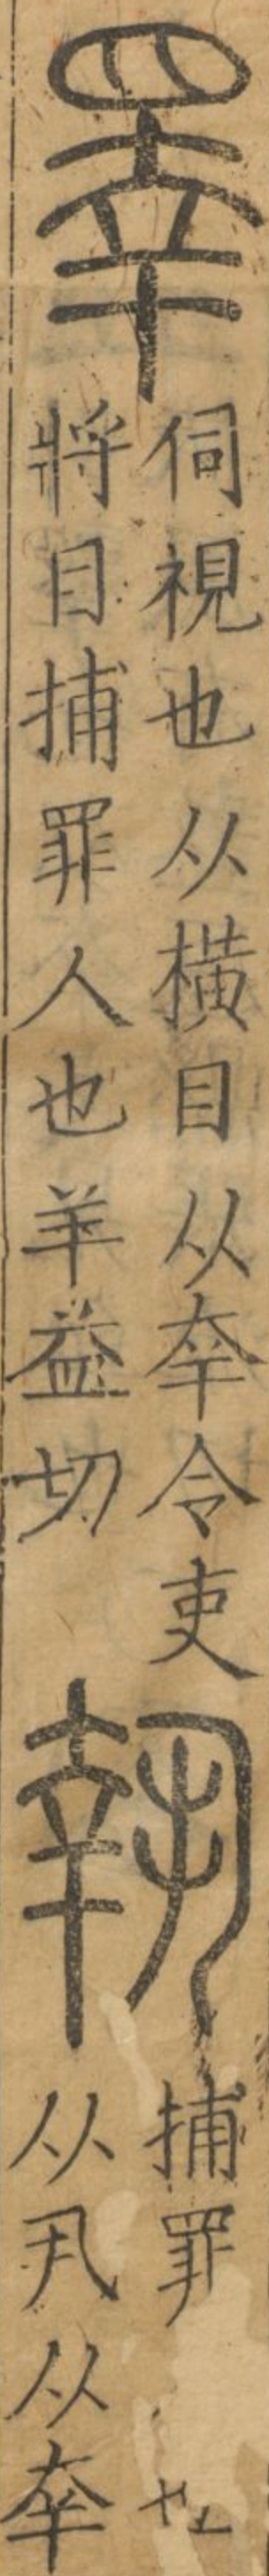 睪
伺視也从橫目从㚔令吏
將目捕罪人也羊益切
執
捕罪 也
从丮从㚔